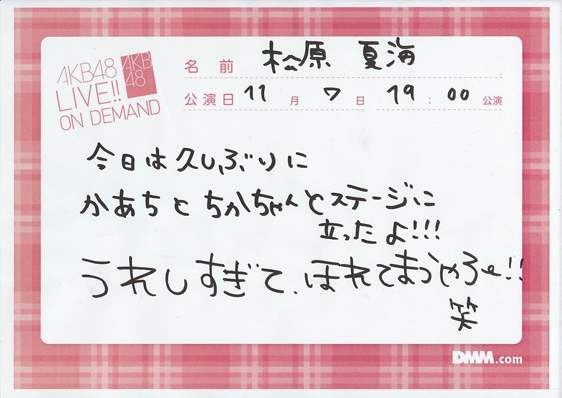 AKB48
LIVE!!
ON DEMAND
AKB
48
名前 松原 夏海
公演日 11月 7日 19:00 公演
今日は久しぶりに
かあちとちかちゃんとステージに
立ったよ!!!
うれしすぎて、ほれてまうやろー!!
笑
DMM.com